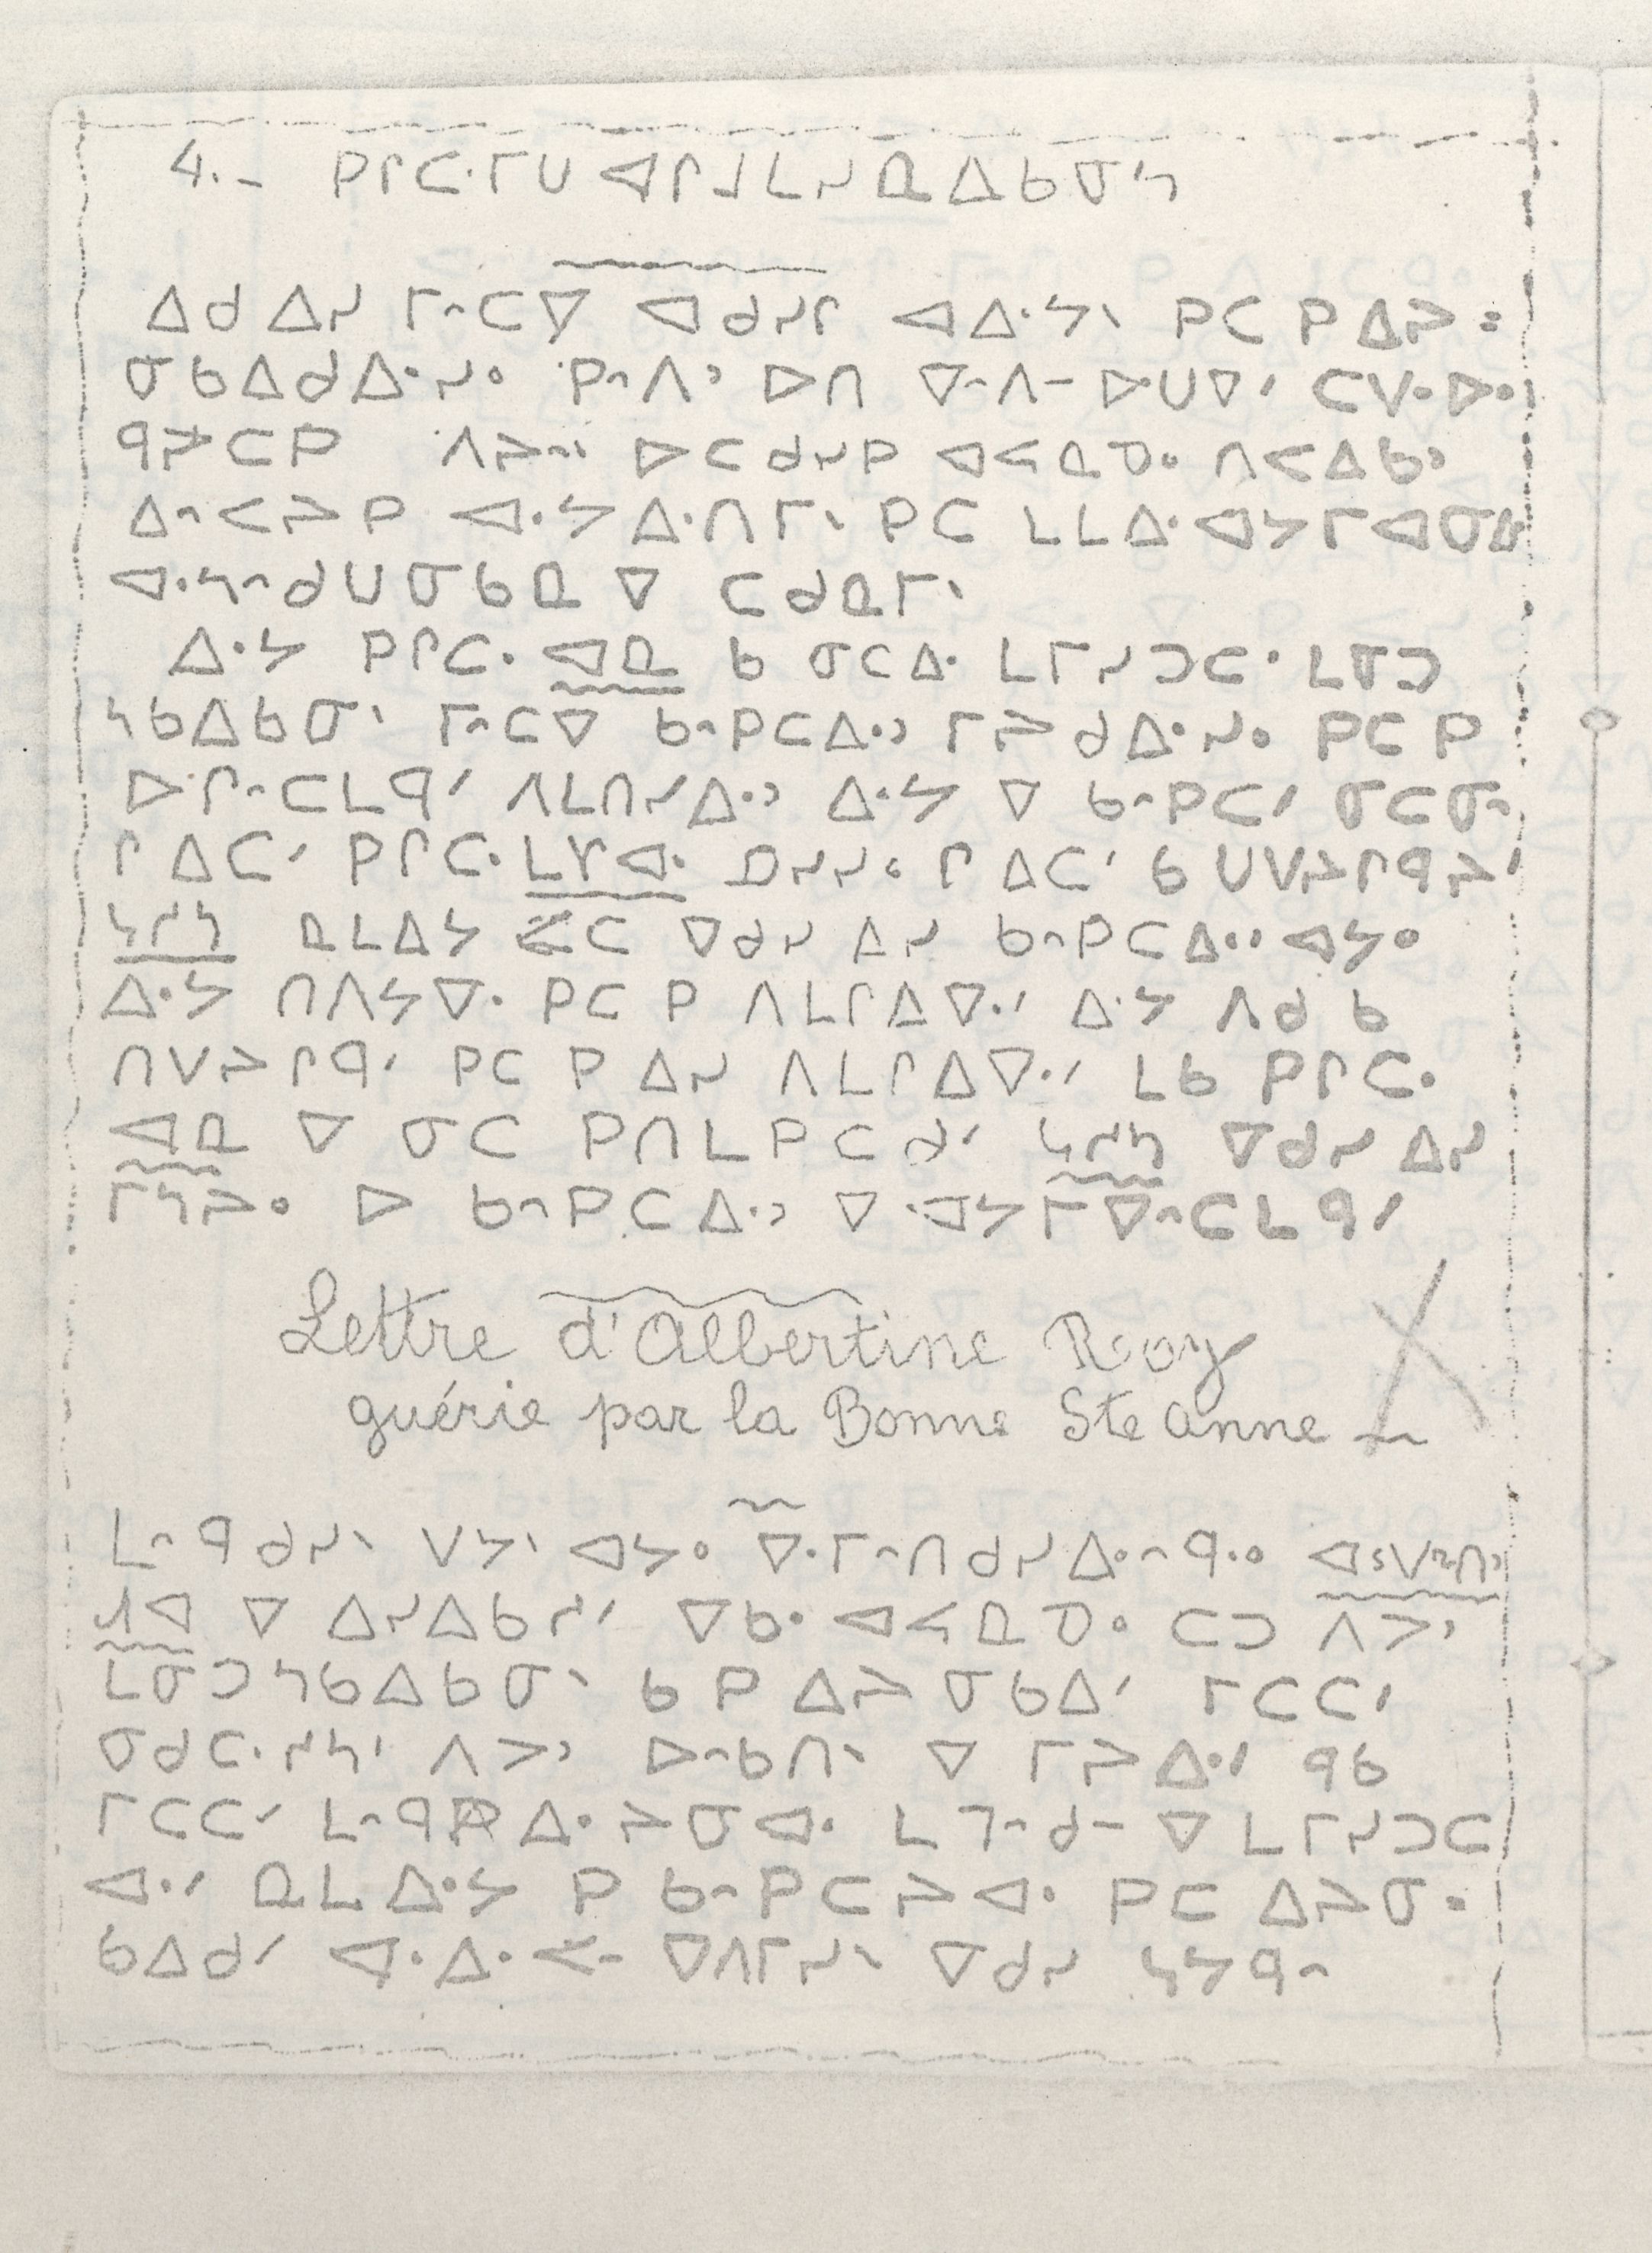 4.- ᑭᒋᑕᐧᒥᑌ ᐊᒋᒧᒪᓯᓇᐃᑲᓂᓴ
ᐃᑯ ᐃᓯ ᒥᐢᑕᐁ ᐊᑯᓯᒋ ᐊᐃᐧᔭᐠ ᑭᑕ ᑭ ᐃᔨ =
ᓂᑲᐃᑯᐃᐧᓯᐤ ᑭᐢᐱᐣ ᐅᑎ ᐁᐢᐱᐨ ᐅᐧᑌᐁᐟ ᑕᐯᐧᐅᐧᐠ
ᑫᔨᑕᑭ ᐱᔨᐢ ᐅᑕᑯᓯᑭ ᐊᐸᓇᓀᐤ ᑎᐸᐃᑲᐣ
ᐃᐢᐸᔨᑭ ᐊᐧᔭᐃᐧᑎᒥᐠ ᑭᑕ ᒪᒪᐃᐧᐊᔭᒥᐊᓂᐃ
ᐊᐧᓴᐢᑯᑌᓂᑲᓇ ᐁ ᑕᑯᓇᒥᐠ
ᐃᐧᔭ ᑭᒋᑕᐧ ᐊᓇ ᑲ ᓂᑕᐃᐧ ᒪᒥᓯᑐᑕᐧ ᒪᓂᑐ
ᓴᑲᐃᑲᓂᐠ ᒥᐢᑕᐁ ᑲᐢᑭᑕᐃᐧᐣ ᒥᔨᑯᐃᐧᓯᐤ ᑭᑕ ᑭ
ᐅᐧᒋᐢᑕᒪᑫᐟ ᐱᒪᑎᓯᐃᐧᐣ ᐃᐧᔭ ᐁ ᑲᐢᑭᑕᐟ ᓂᑕᓂᐢ
ᒋ ᐃᑕᐟ ᑭᒋᑕᐧ ᒪᓯᐊᐧ ᓄᓯᓯᐤ ᒋ ᐃᑕᐟ ᑲ ᑌᐯᔨᒋᑫᔨᐟ
ᓴᓯᓴ ᓇᒪᐃᔭ ᐸᑕ ᐁᑯᓯ ᐃᓯ ᑲᐢᑭᑕᐃᐧᐣ ᐊᔭᐤ
ᐃᐧᔭ ᑎᐱᔭᐁᐧ ᑭᑕ ᑭ ᐱᒪᒋᐃᐁᐧᐟ ᐃᐧᔭ ᐱᑯ ᑲ
ᑎᐯᔨᒋᑫᐟ ᑭᑕ ᑭ ᐃᓯ ᐱᒪᒋᐃᐁᐧᐟ ᒪᑲ ᑭᒋᑕᐧ
ᐊᓇ ᐁ ᓂᑕ ᑭᑎᒪᑭᑕᑯᐟ ᓴᓯᓴ ᐁᑯᓯ ᐃᓯ
ᒥᓴᔨᐤ ᐅ ᑲᐢᑭᑕᐃᐧᐣ ᐁ ᐊᐧᔭᒥᐁᐢᑕᒪᑫᐟ
Lettre d'Albertine Roy
guérie par la Bonne Ste Anne
ᒪᐢᑫᑯᓯᐠ ᐯᔭᐠ ᐊᔭᐤ ᐁᐧᒥᐢᑎᑯᓯᐃᐧᐢᑫᐧᐤ
ᐁ ᐃᓯᐃᑲᓱᐟ ᐁᑲᐧ ᐊᐸᓇᓀᐤ ᑕᑐ ᐱᐳᐣ
ᒪᓂᑐᓴᑲᐃᑲᓂᐠ ᑲ ᑭ ᐃᔨᓂᑲᐃᐟ ᒥᑕᑕᐟ
ᓂᑯᑕᐧᓱᓴᐟ ᐱᐳᐣ ᐅᐢᑲᑎᐠ ᐁ ᒥᔨᐃᐧᐟ ᑫᑲ
ᒥᑕᑕᐟ ᒪᐢᑫᑭ ᐃᐧᔨᓂᐊᐧ ᒪ ᒣᐢᑯᐨ ᐁ ᒪᒥᓯᑐᑕ
ᐊᐧᐟ ᓇᒪᐃᐧᔭ ᑭ ᑲᐢᑭᑕᔨᐊᐧ ᑭᑕ ᐃᔨᓂᐧ
ᑲᐃᑯᐟ ᐊᐧᐃᐧᐸᐨ ᐁᐱᒥᓯᐠ ᐁᑯᓯ ᓴᔭᑫᐢ